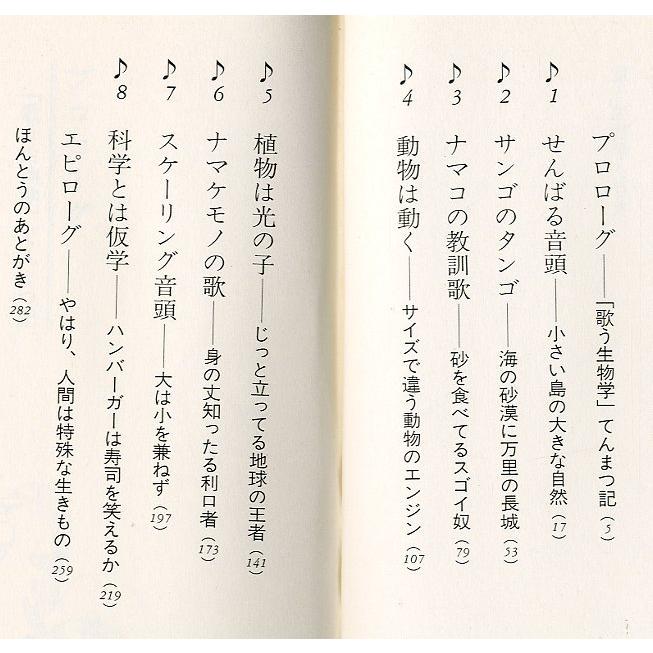 プロローグ――「歌う生物学」てんまつ記（5）
♪1 せんばる音頭――小さい島の大きな自然（17）
♪2 サンゴのタンゴ――海の砂漠に万里の長城（53）
♪3 ナマコの教訓歌――砂を食べてるスゴイ奴（79）
♪4 動物は動く――サイズで違う動物のエンジン（107）
♪5 植物は光の子――じっと立ってる地球の王者（141）
♪6 ナマケモノの歌――身の丈知ったる利口者（173）
♪7 スケーリング音頭――大は小を兼ねず（197）
♪8 科学とは仮学――ハンバーガーは寿司を笑えるか（219）
エピローグ――やはり、人間は特殊な生きもの（259）
ほんとうのあとがき（282）